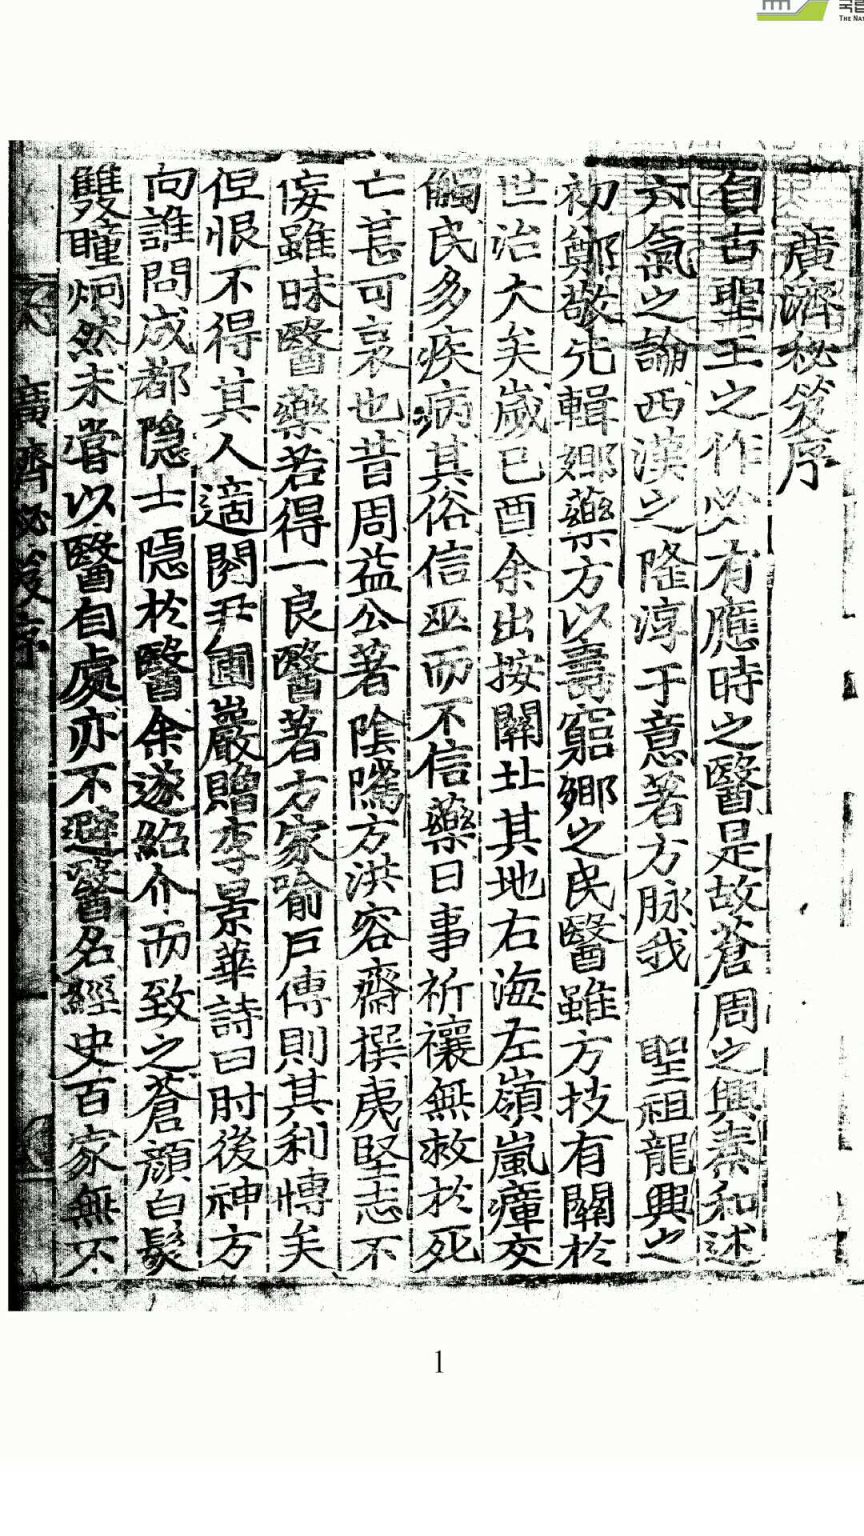 廣濟秘笈序
自古聖王之作必有應時之醫是故蒼周之興秦和述
六氣之論西漢之隆淳于意著方脉我 聖祖龍興之
初鄭敬先輯鄉藥方以壽窮鄉之民醫雖方技有關於
世治大矣歲己酉余出按關北其地右海左嶺嵐瘴交
觸民多疾病其俗信巫而不信藥日事祈禳無救於死
亡甚可哀也昔周益公著陰隲方洪容齋撰夷堅志不
侫雖昧醫藥若得一良醫著方家喻戶傳則其利愽矣
但恨不得其人適閱尹圃巖贈李景華詩曰肘後神方
向誰問成都隐士隱於醫余遂紹介而致之蒼顔白髮
雙瞳炯然未嘗以醫自處亦不避醫名經史百家無不
廣濟秘笈序
國립
THE NAT
1